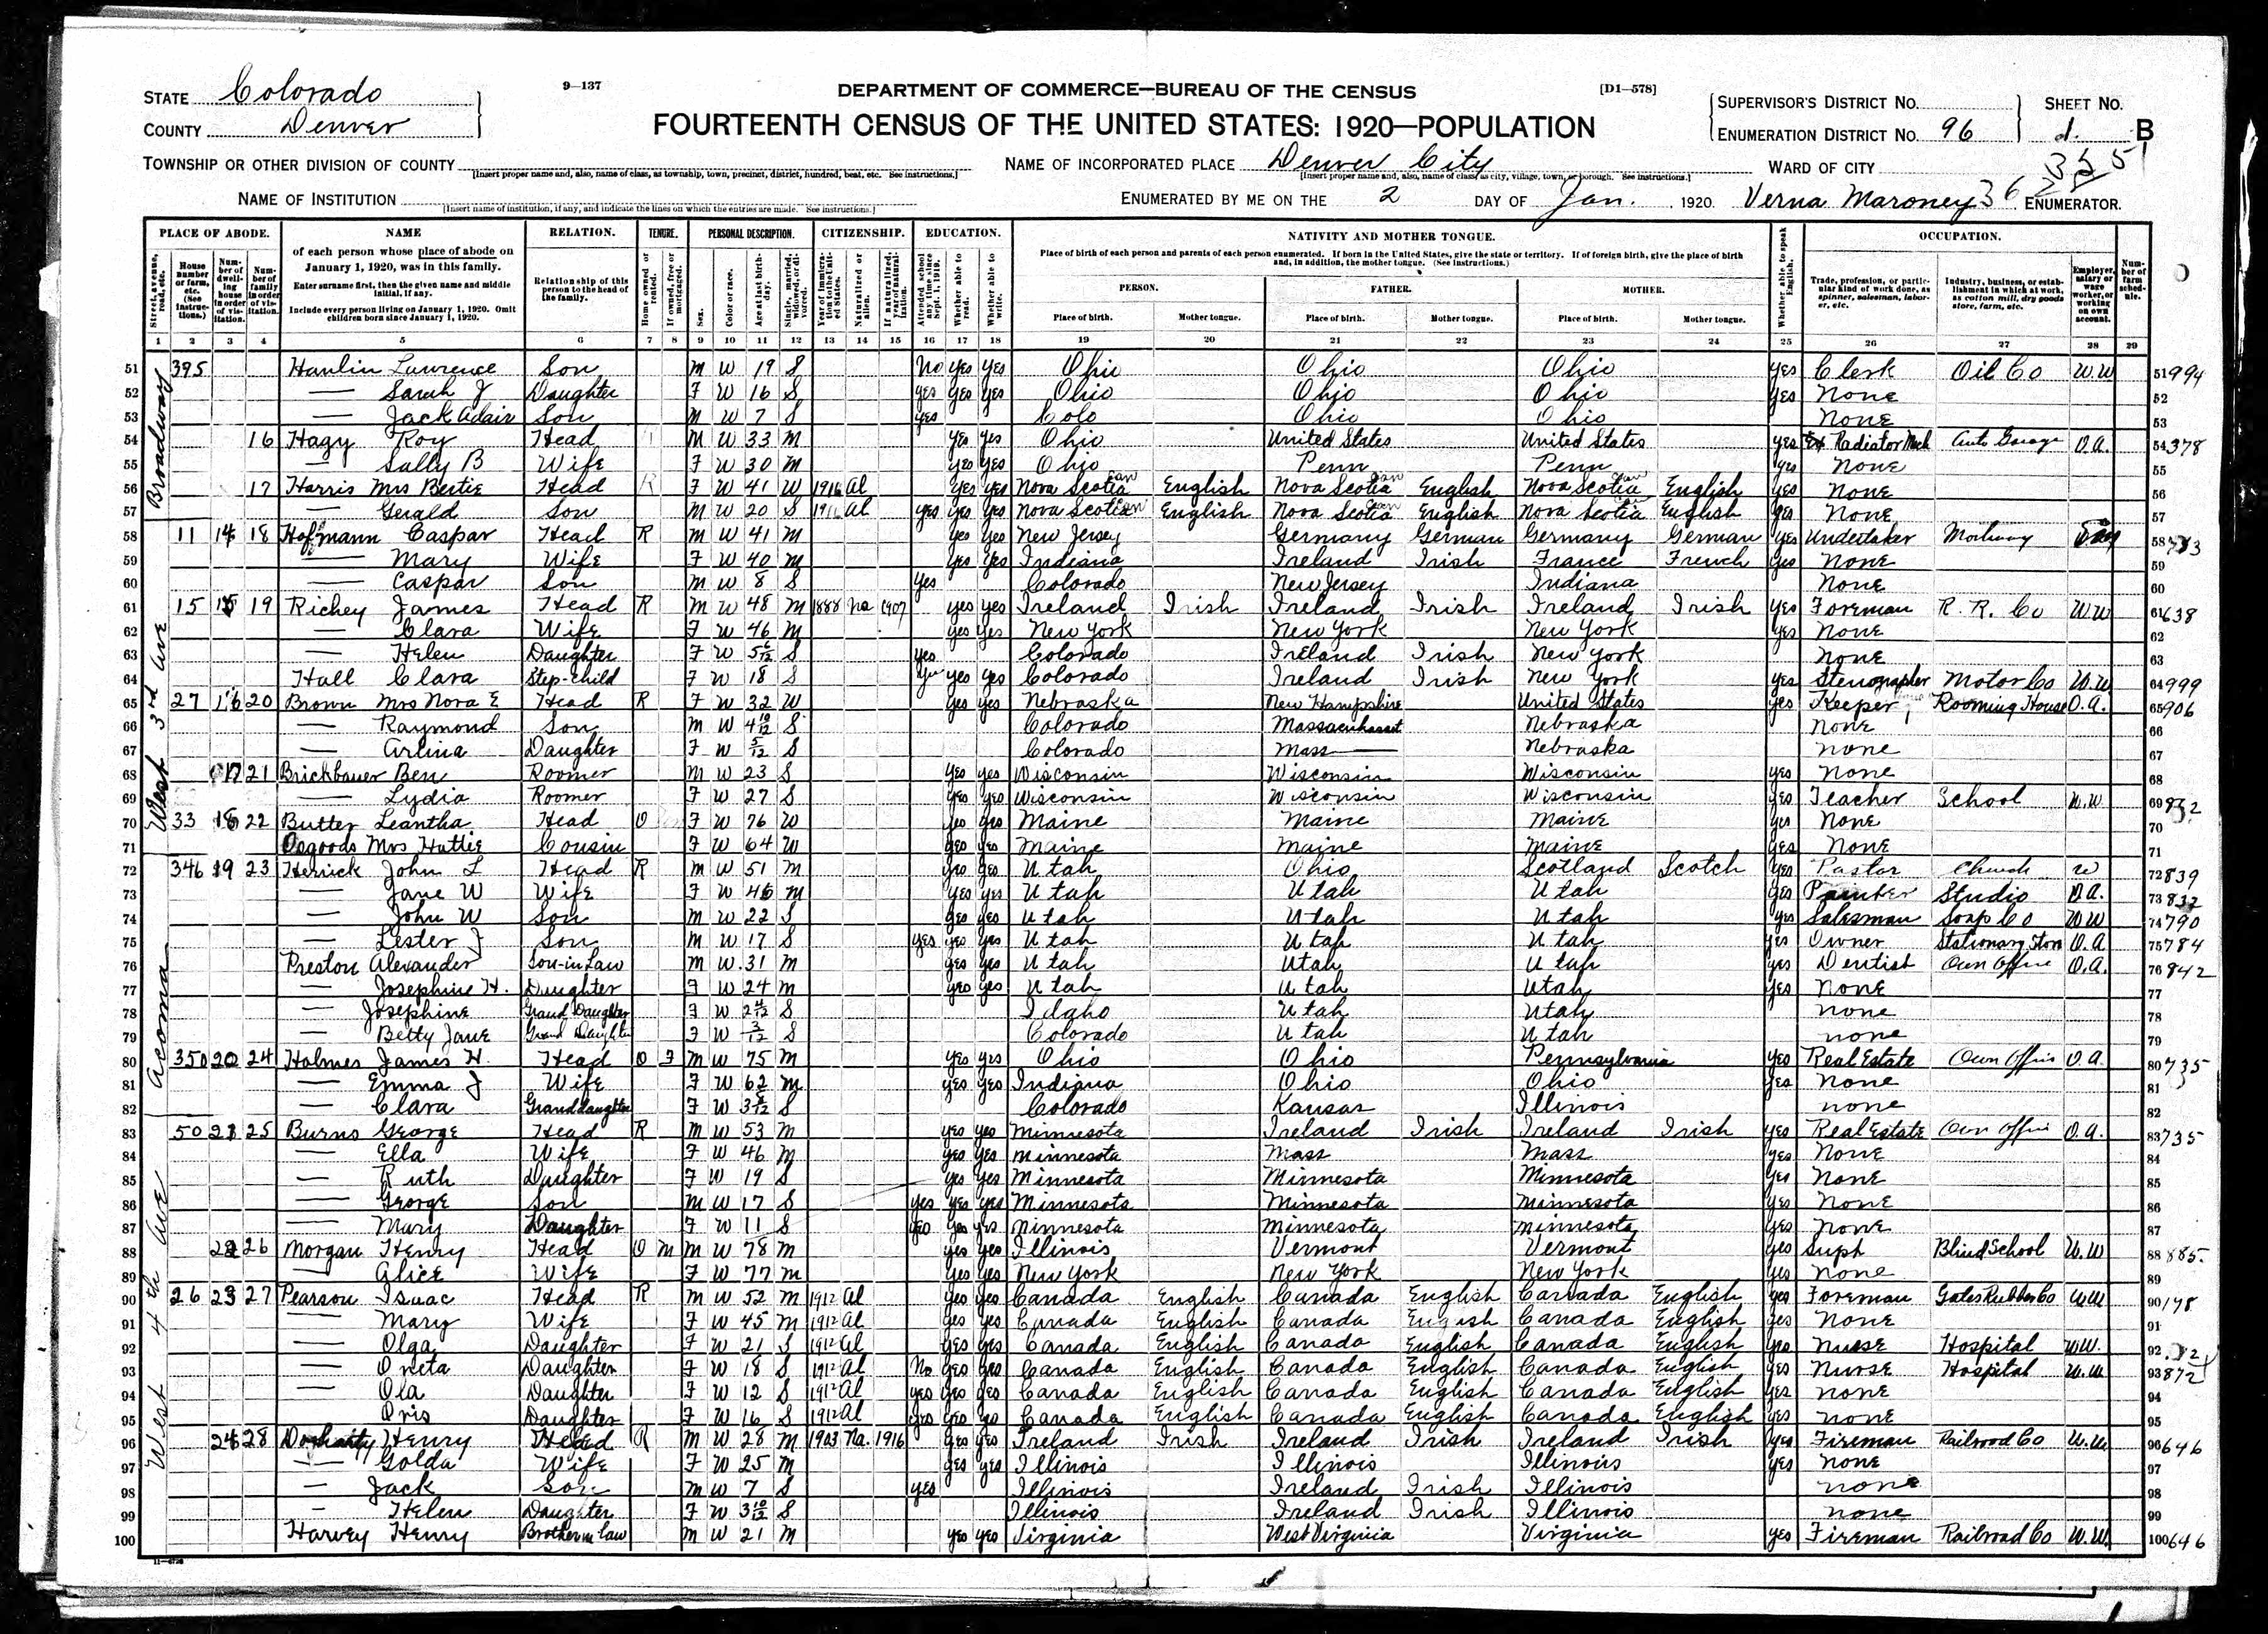 STATE Colorado
COUNTY Denver
9—137
DEPARTMENT OF COMMERCE—BUREAU OF THE CENSUS
[D1—578]
FOURTEENTH CENSUS OF THE UNITED STATES: 1920—POPULATION
SUPERVISOR'S DISTRICT No.
ENUMERATION DISTRICT No. 96
SHEET No.
1. B
TOWNSHIP OR OTHER DIVISION OF COUNTY
[Insert proper name and, also, name of class, as township, town, precinct, district, hundred, beat, etc. See instructions.]
NAME OF INCORPORATED PLACE Denver City
[Insert proper name and, also, name of class, as city, village, town, or borough. See instructions.]
WARD OF CITY
NAME OF INSTITUTION
[Insert name of institution, if any, and indicate the lines on which the entries are made. See instructions.]
ENUMERATED BY ME ON THE 2 DAY OF Jan. , 1920. Verna Maroney ENUMERATOR.
PLACE OF ABODE. NAME RELATION. TENURE. PERSONAL DESCRIPTION. CITIZENSHIP. EDUCATION. NATIVITY AND MOTHER TONGUE. OCCUPATION.
1 2 3 4 5 6 7 8 9 10 11 12 13 14 15 16 17 18 19 20 21 22 23 24 25 26 27 28 29
Broadway
51 395 Hanlin Lawrence Son M W 19 S No Yes Yes Ohio Ohio Ohio Yes Clerk Oil Co W.W 51 994
52 — Sarah J Daughter F W 16 S Yes Yes Yes Ohio Ohio Ohio Yes None 52
53 — Jack Adair Son M W 7 S Yes Colo Ohio Ohio None 53
54 16 Hagy Roy Head M W 33 M Yes Yes Ohio United States United States Yes Radiator Auto Garage O.A. 54 378
55 — Sally B Wife F W 30 M Yes Yes Ohio Penn Penn Yes None 55
56 17 Harris Mrs Bertie Head R F W 41 W 1916 Al Yes Yes Nova Scotia English Nova Scotia English Nova Scotia English Yes None 56
57 — Gerald Son M W 20 S Al Yes Yes Yes Nova Scotia English Nova Scotia English Nova Scotia English Yes None 57
West 3rd Ave
58 11 14 18 Hofmann Caspar Head R M W 41 M Yes Yes New Jersey Germany German Germany German Yes Undertaker 58
59 — Mary Wife F W 40 M Yes Yes Indiana Ireland Irish France French Yes None 59
60 — Caspar Son M W 8 S Yes Colorado New Jersey Indiana None 60
61 15 15 19 Richey James Head R M W 48 M 1888 Na 1907 Yes Yes Ireland Irish Ireland Irish Ireland Irish Yes Foreman R. R. Co W.W 61 638
62 — Clara Wife F W 46 M Yes Yes New York New York New York Yes None 62
63 — Helen Daughter F W S Yes Colorado Ireland Irish New York None 63
64 Hall Clara Step-child F W 18 S Yes Yes Yes Colorado Ireland Irish New York Yes Stenographer Motor Co W.W 64 999
65 27 16 20 Brown Mrs Nora E Head R F W 32 W Yes Yes Nebraska New Hampshire United States Yes Keeper Rooming House O.A. 65 906
66 — Raymond Son M W 4 10/12 S Colorado Nebraska None 66
67 — Arlina Daughter F W 5/12 S Colorado Mass — Nebraska None 67
68 17 21 Brickbauer Ben Roomer M W 23 S Yes Yes Wisconsin Wisconsin Wisconsin Yes None 68
69 — Lydia Roomer F W 27 S Yes Yes Wisconsin Wisconsin Wisconsin Yes Teacher School W.W 69
70 33 18 22 Butter Leantha Head O F W 76 W Yes Yes Maine Maine Maine Yes None 70
71 Osgoods Mrs Hattie Cousin F W 64 W Yes Yes Maine Maine Maine Yes None 71
Acoma
72 346 19 23 Herrick John L Head R M W 51 M Yes Yes Utah Ohio Scotland Scotch Yes Pastor Church W 72 839
73 — Jane W Wife F W 46 M Yes Yes Utah Utah Utah Yes Painter Studio O.A. 73 832
74 — John W Son M W 22 S Yes Yes Utah Utah Utah Yes Salesman Soap Co W W 74 790
75 — Lester J Son M W 17 S Yes Yes Yes Utah Utah Utah Yes Owner Stationary Store O.A 75 784
76 Preston Alexander Son-in Law M W 31 M Yes Yes Utah Utah Utah Yes Dentist Own Office O.A. 76 842
77 — Josephine H. Daughter F W 24 M Yes Yes Utah Utah Utah Yes None 77
78 — Josephine Grand Daughter F W S Idaho Utah Utah None 78
79 — Betty Jane Grand Daughter F W 3/12 S Colorado Utah Utah None 79
80 350 20 24 Holmes James H. Head O F M W 75 M Yes Yes Ohio Ohio Pennsylvania Yes Real Estate Own Office O.A. 80 735
81 — Emma J Wife F W 62 M Yes Yes Indiana Ohio Ohio Yes None 81
82 — Clara Granddaughter F W S Colorado Kansas Illinois None 82
West 4th Ave
83 50 21 25 Burns George Head R M W 53 M Yes Yes Minnesota Ireland Irish Ireland Irish Yes Real Estate Own Office O.A. 83 735
84 — Ella Wife F W 46 M Yes Yes Minnesota Mass Mass Yes None 84
85 — Ruth Daughter F W 19 S Yes Yes Minnesota Minnesota Minnesota Yes None 85
86 — George Son M W 17 S Yes Yes Yes Minnesota Minnesota Minnesota Yes None 86
87 — Mary Daughter F W 11 S Yes Yes Yes Minnesota Minnesota Minnesota Yes None 87
88 22 26 Morgan Henry Head O M M W 78 M Yes Yes Illinois Vermont Vermont Yes Supt Blind School W.W 88 885
89 — Alice Wife F W 77 M Yes Yes New York New York New York Yes None 89
90 26 23 27 Pearson Isaac Head R M W 52 M 1912 Al Yes Yes Canada English Canada English Canada English Yes Foreman Gates Rubber Co W.W 90 178
91 — Mary Wife F W 45 M 1912 Al Yes Yes Canada English Canada English Canada English Yes None 91
92 — Olga Daughter F W 21 S 1912 Al Yes Yes Canada English Canada English Canada English Yes Nurse Hospital W.W. 92
93 — Oneta Daughter F W 18 S 1912 Al No Yes Yes Canada English Canada English Canada English Yes Nurse Hospital W.W 93 872
94 — Ola Daughter F W 12 S 1912 Al Yes Yes Yes Canada English Canada English Canada English Yes None 94
95 Oris Daughter F W 16 S 1912 Al Yes Yes Yes Canada English Canada English Canada English Yes None 95
96 24 28 Henry Head R M W 28 M 1903 Na. 1916 Yes Yes Ireland Irish Ireland Irish Ireland Irish Yes Fireman Railroad Co W.W 96 646
97 — Golda Wife F W 25 M Yes Yes Illinois Illinois Illinois Yes None 97
98 — Jack Son M W 7 S Yes Illinois Ireland Irish Illinois None 98
99 — Helen Daughter F W 3 10/12 S Illinois Ireland Irish Illinois None 99
100 Harvey Henry Brother in law M W 21 M Yes Yes Virginia West Virginia Virginia Yes Fireman Railroad Co W.W. 100 646